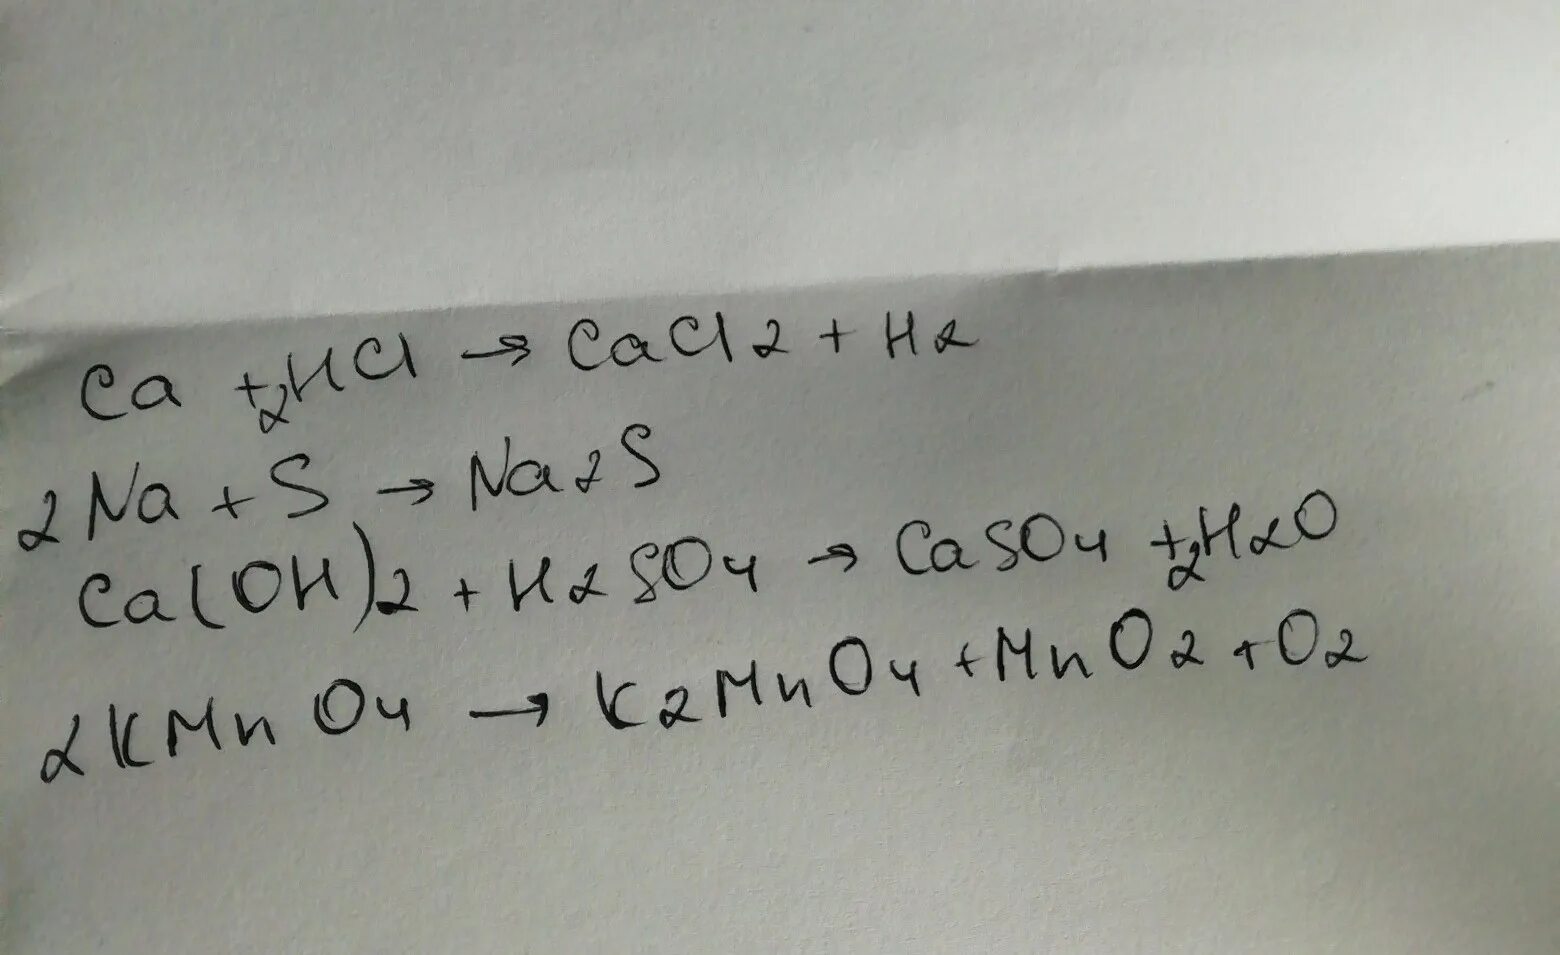 Ca +2HCl → CaCl2 + H2
2Na + S → Na2S
Ca(OH)2 + H2SO4 → CaSO4 +2H2O
2KMnO4 → K2MnO4 + MnO2 + O2